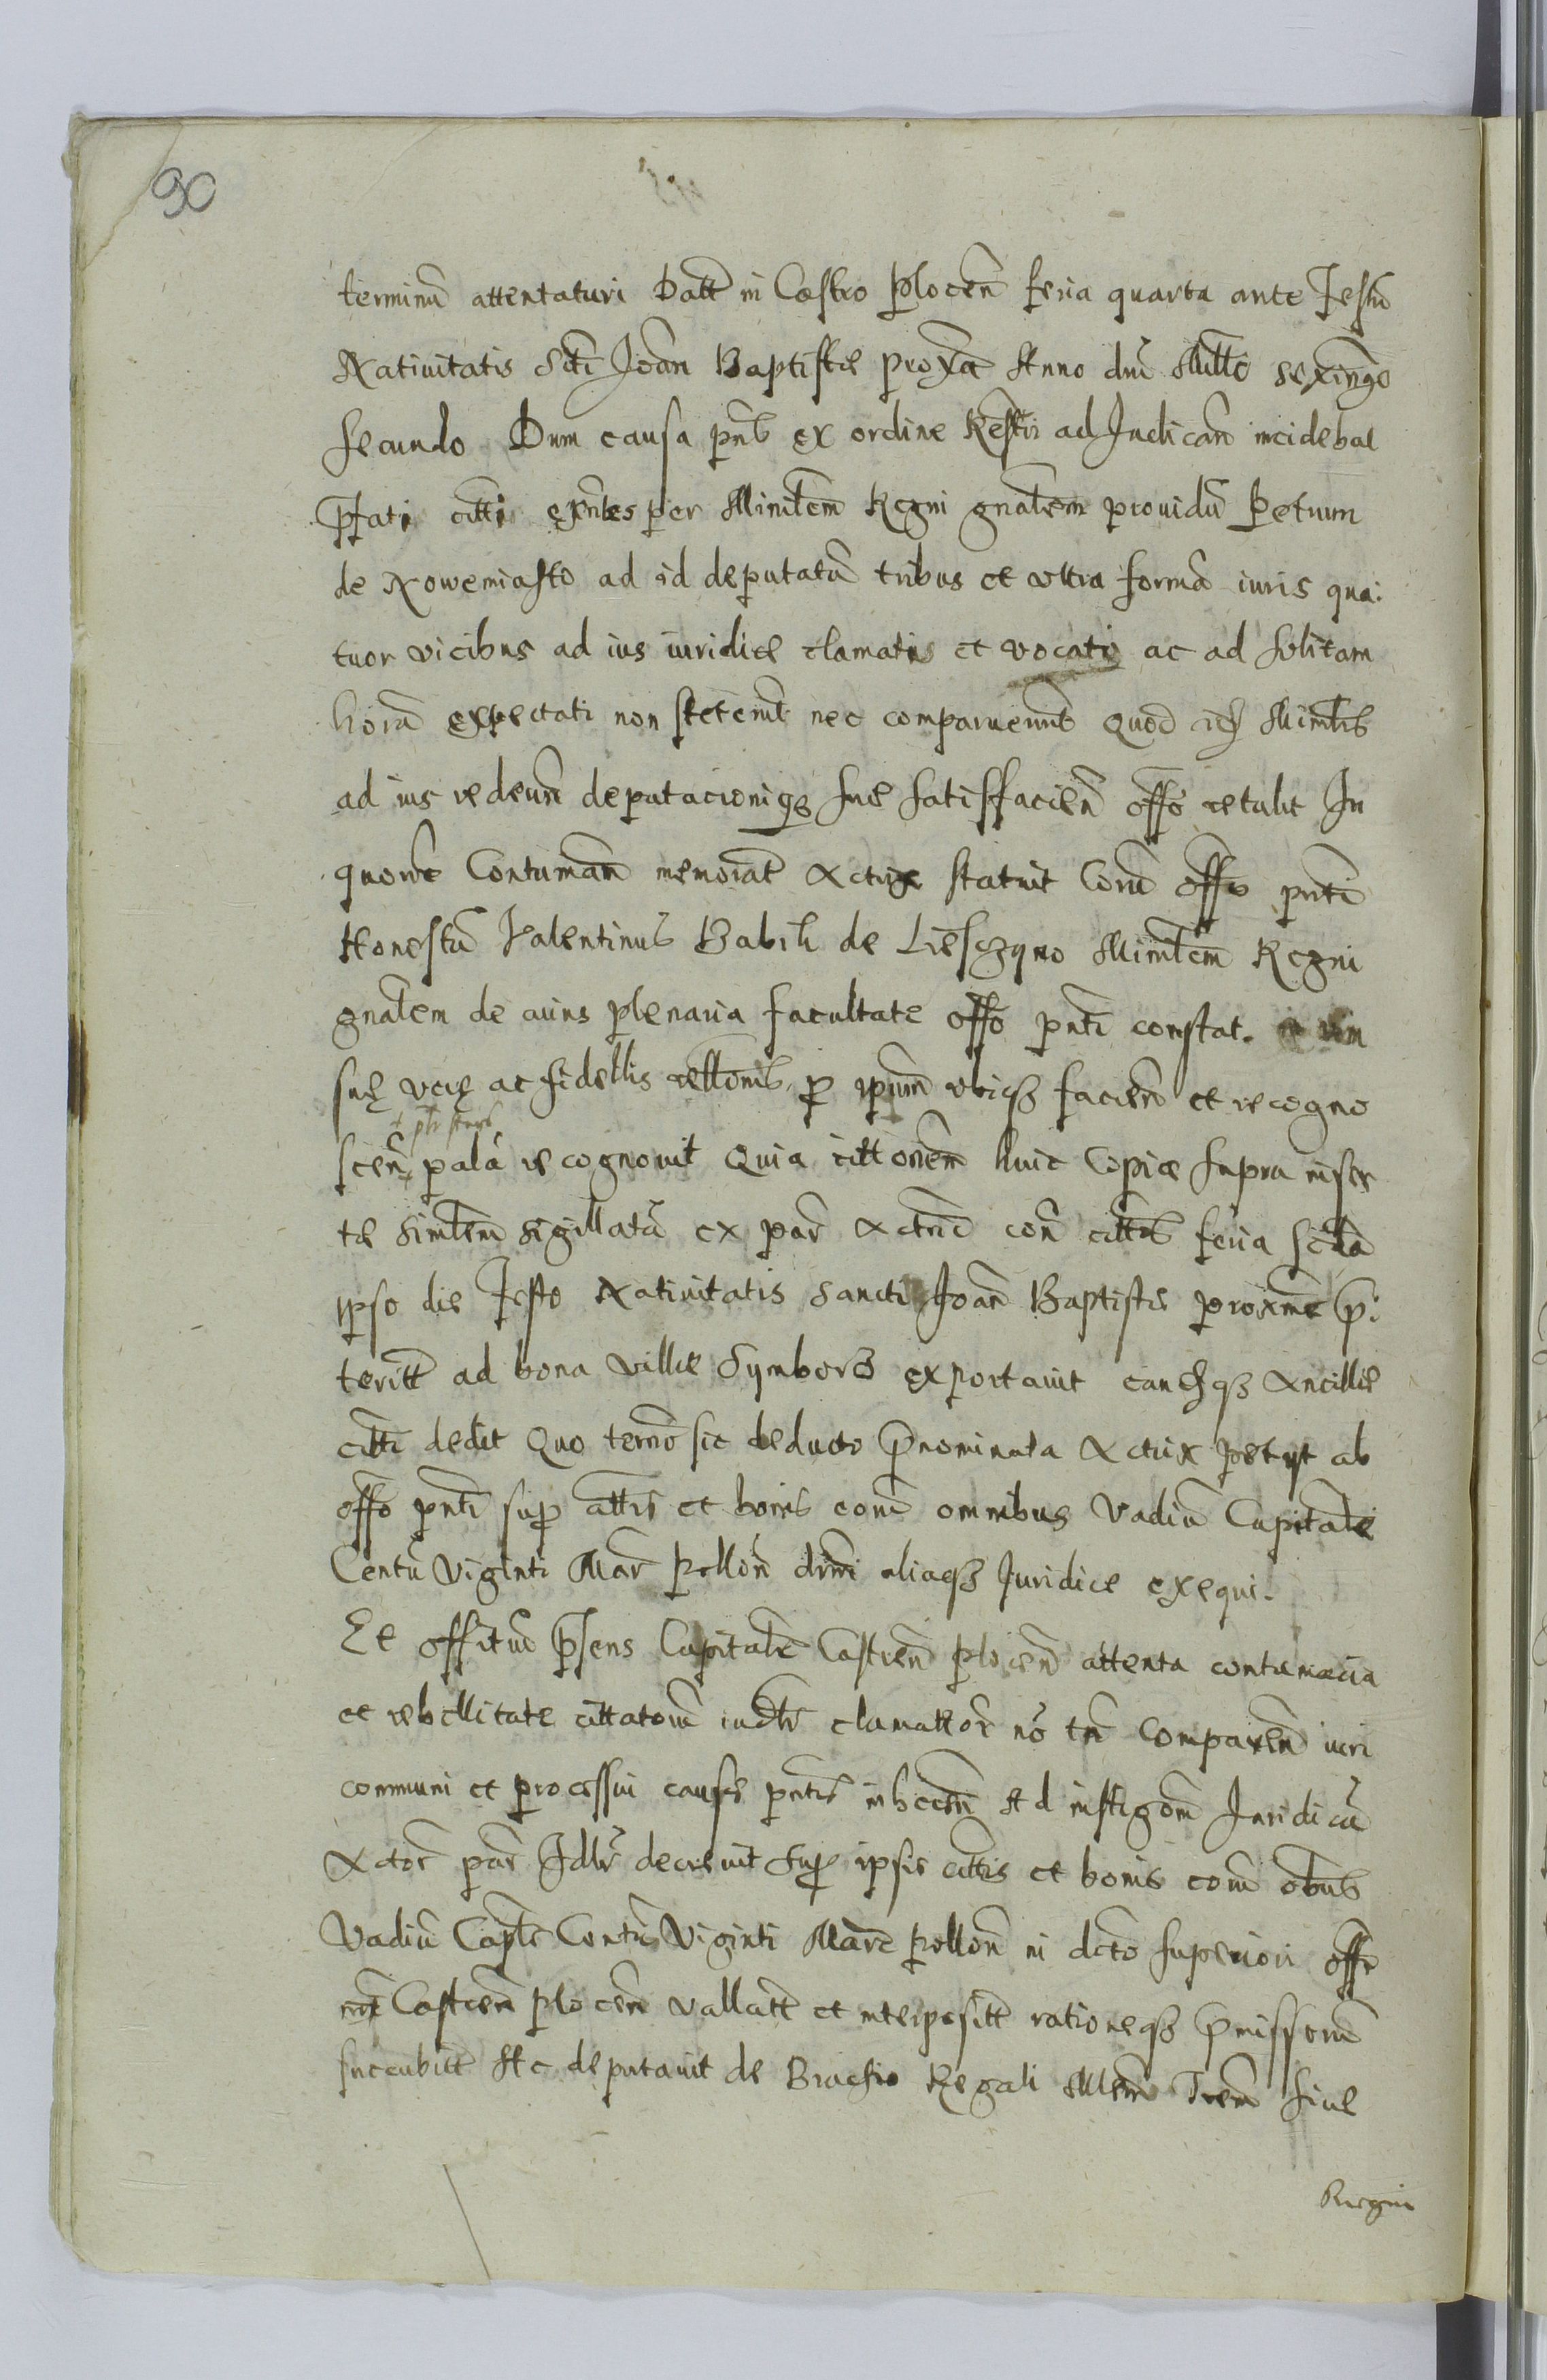 90
terminũ attentaturi Datt̃ in Castro Plocen̄ feria quarta ante Festũ
Nativitatis Scti Joãn Baptistæ proxã Anno dnĩ Mill̃o sexingo
secundo Dum causa pñs ex ordine Restri ad Judicãn incidebat
Pfati citti exñtes per Minilem Regni gñalem providũ Petrum
de Nowemiasto ad id deputatũ tribus et ultra formã iuris qua:
tuor vicibus ad ius iuridice clamatis et vocati ac ad solitam
horã expectati non steterũt nec comparuerunt quod idẽ Minĩlis
ad ius redeuñ deputacioniqȝ suæ satisfacieñ offõ retulit In
quorũ Contumañ memorat̃ Actrix statuit Corã offo pñti
Honestũ Valentinũ Babik de Liesczyno Minilem Regni
gñalem de cuius plenaria facultate offo pñti constat.
suę verę ac fidellis rellonis p ipum ubiqȝ facieñ et recogno
sceñ palã recognovit Quia cittonem huic Copiæ supra inser
tæ similem sigillatã ex par̃ Actric̃ coñ cittos feria scda
ipso die Festo Nativitatis Sancti Joañ Baptistæ proxime p̃:
teritt ad bona villæ Symbors exportavit eandẽqȝ Ancillæ
citti dedit Quo termo sic deducto p̃nominata Actrix petyt ab
offo pñti sup cittis et bonis eorũ omnibus Vadiũ Capitale
Centũ Viginti Mar̃ Pollon̄ dimi aliaqȝ Juridice exequi.
Et offitiũ p̃sens Capitale Castren̄ Plocen̄ attenta contumacia
et rebellitate cittatorũ iudlr clamattor̃ nõ tñ Compareñ iuri
communi et processui causæ pñtis inhereñ Ad instigoñ Juridicã
Actor̃ par̃ Jdlr decrevit sup ipsis cittis et bonis eorũ õibus
Vadiũ Caple Centũ Viginti Marc̃ Pollon̄ in dicto superiori offo
Castren̄ Plocen̄ vallatt̃ et interpositt̃ rationeqȝ p̃missorũ
succubitt̃ Ac deputavit de Brachio Regali Minlem Tren̄ sive
Regni